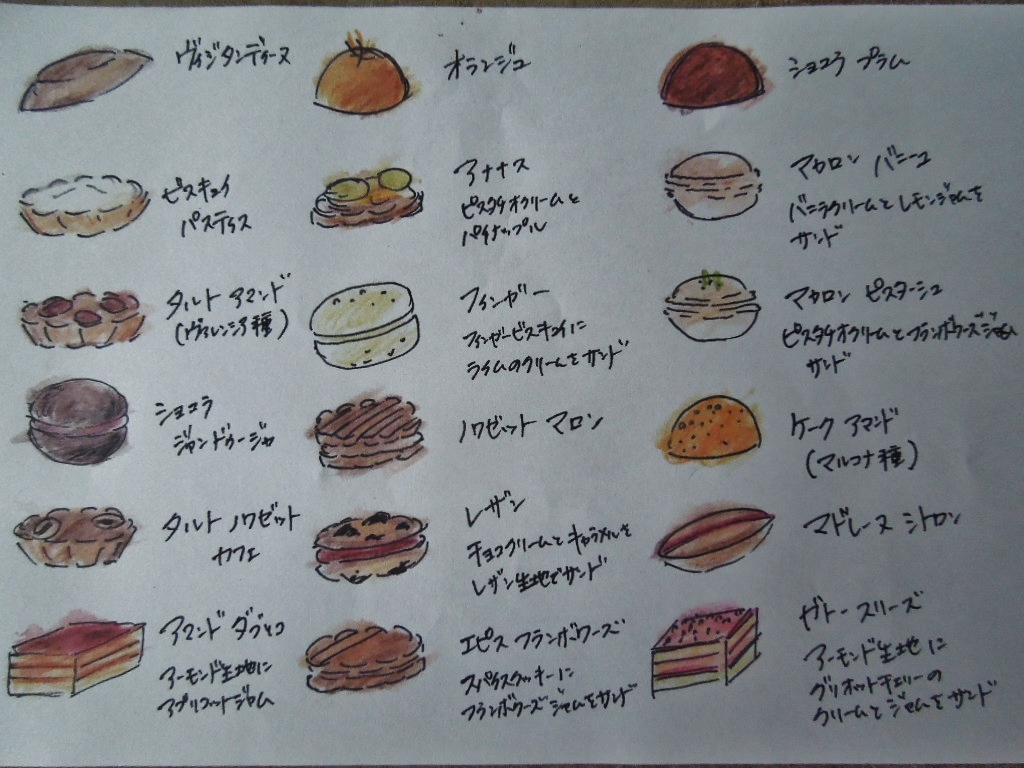 ヴィジタンディーヌ
オランジュ
ショコラ プラム
ビスキュイ
パスティス
アナナス
ピスタチオクリームと
パイナップル
マカロン バニーユ
バニラクリームとレモンジャムを
サンド
タルト アマンド
(ヴァレンシア種)
フィンガー
フィンガービスキュイに
ライムのクリームをサンド
マカロン ピスターシュ
ピスタチオクリームとフランボワーズジャム
サンド
ショコラ
ジャンドゥージャ
ノワゼット マロン
ケーク アマンド
(マルコナ種)
タルト ノワゼット
カフェ
レザン
チョコクリームとキャラメルを
レザン生地でサンド
マドレーヌ シトロン
アマンド
アーモンド生地に
アプリコットジャム
エピス フランボワーズ
スパイスクッキーに
フランボワーズジャムをサンド
ガトー スリーズ
アーモンド生地に
グリオットチェリーの
クリームとジャムをサンド